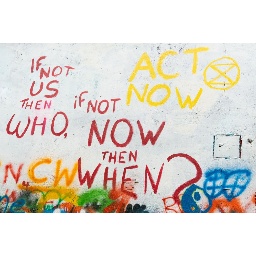 IF NOT
US
THEN
WHO,
iF NOT
NOW
THEN
WHEN?
ACT
NOW